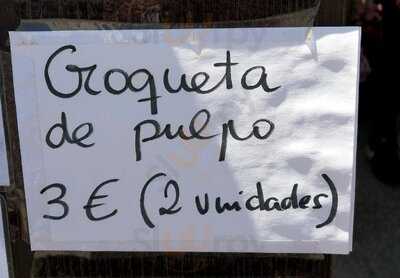 Croqueta
de pulpo
3 € (2 unidades)